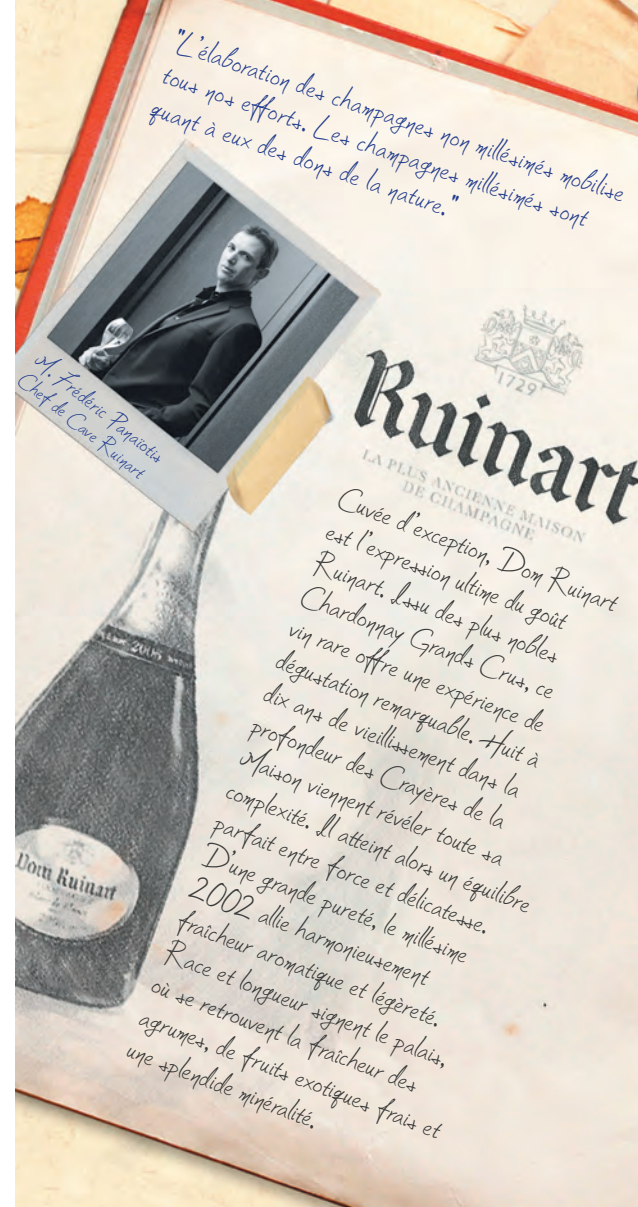 "L'élaboration des champagnes non millésimés mobilise
tous nos efforts. Les champagnes millésimés sont
quant à eux des dons de la nature."
M. Frédéric Panaïotis
Chef de Cave Ruinart
1729
Ruinart
LA PLUS ANCIENNE MAISON
DE CHAMPAGNE
Cuvée d'exception, Dom Ruinart
est l'expression ultime du goût
Ruinart. Issu des plus nobles
Chardonnay Grands Crus, ce
vin rare offre une expérience de
dégustation remarquable. Huit à
dix ans de vieillissement dans la
profondeur des Crayères de la
Maison viennent révéler toute sa
complexité. Il atteint alors un équilibre
parfait entre force et délicatesse.
D'une grande pureté, le millésime
2002 allie harmonieusement
fraîcheur aromatique et légèreté.
Race et longueur signent le palais,
où se retrouvent la fraîcheur des
agrumes, de fruits exotiques frais et
une splendide minéralité.
Dom Ruinart